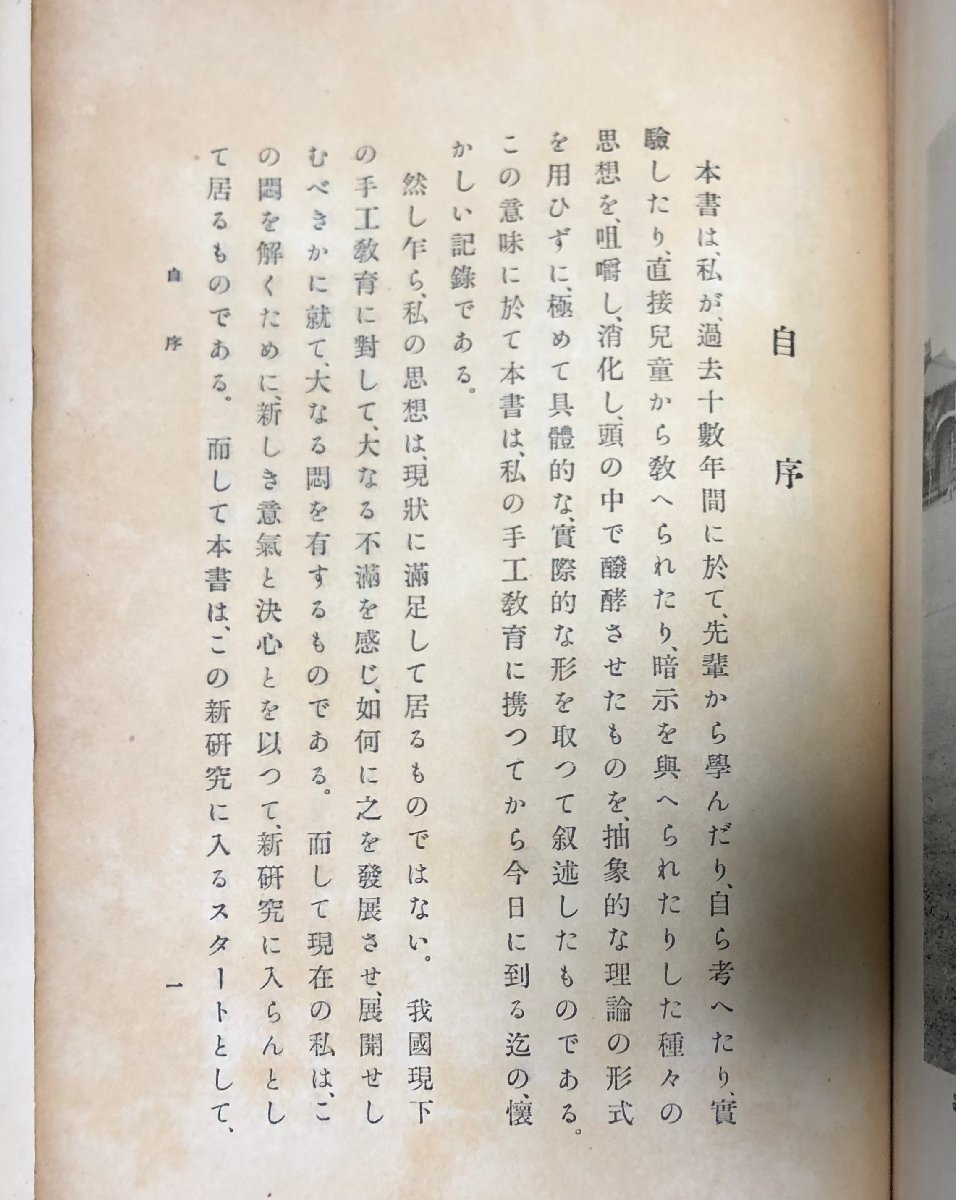 自序
本書は、私が、過去十數年間に於て、先輩から學んだり、自ら考へたり、實
驗したり、直接兒童から敎へられたり、暗示を與へられたりした種々の
思想を、咀嚼し、消化し、頭の中で醱酵させたものを、抽象的な理論の形式
を用ひずに、極めて具體的な、實際的な形を取つて叙述したものである。
この意味に於て本書は、私の手工敎育に携つてから今日に到る迄の、懷
かしい記錄である。
然し乍ら、私の思想は、現狀に滿足して居るものではない。我國現下
の手工敎育に對して、大なる不滿を感じ、如何に之を發展させ、展開せし
むべきかに就て、大なる悶を有するものである。而して現在の私は、こ
の悶を解くために、新しき意氣と決心とを以つて、新硏究に入らんとし
て居るものである。而して本書は、この新硏究に入るスタートとして、
自序
一